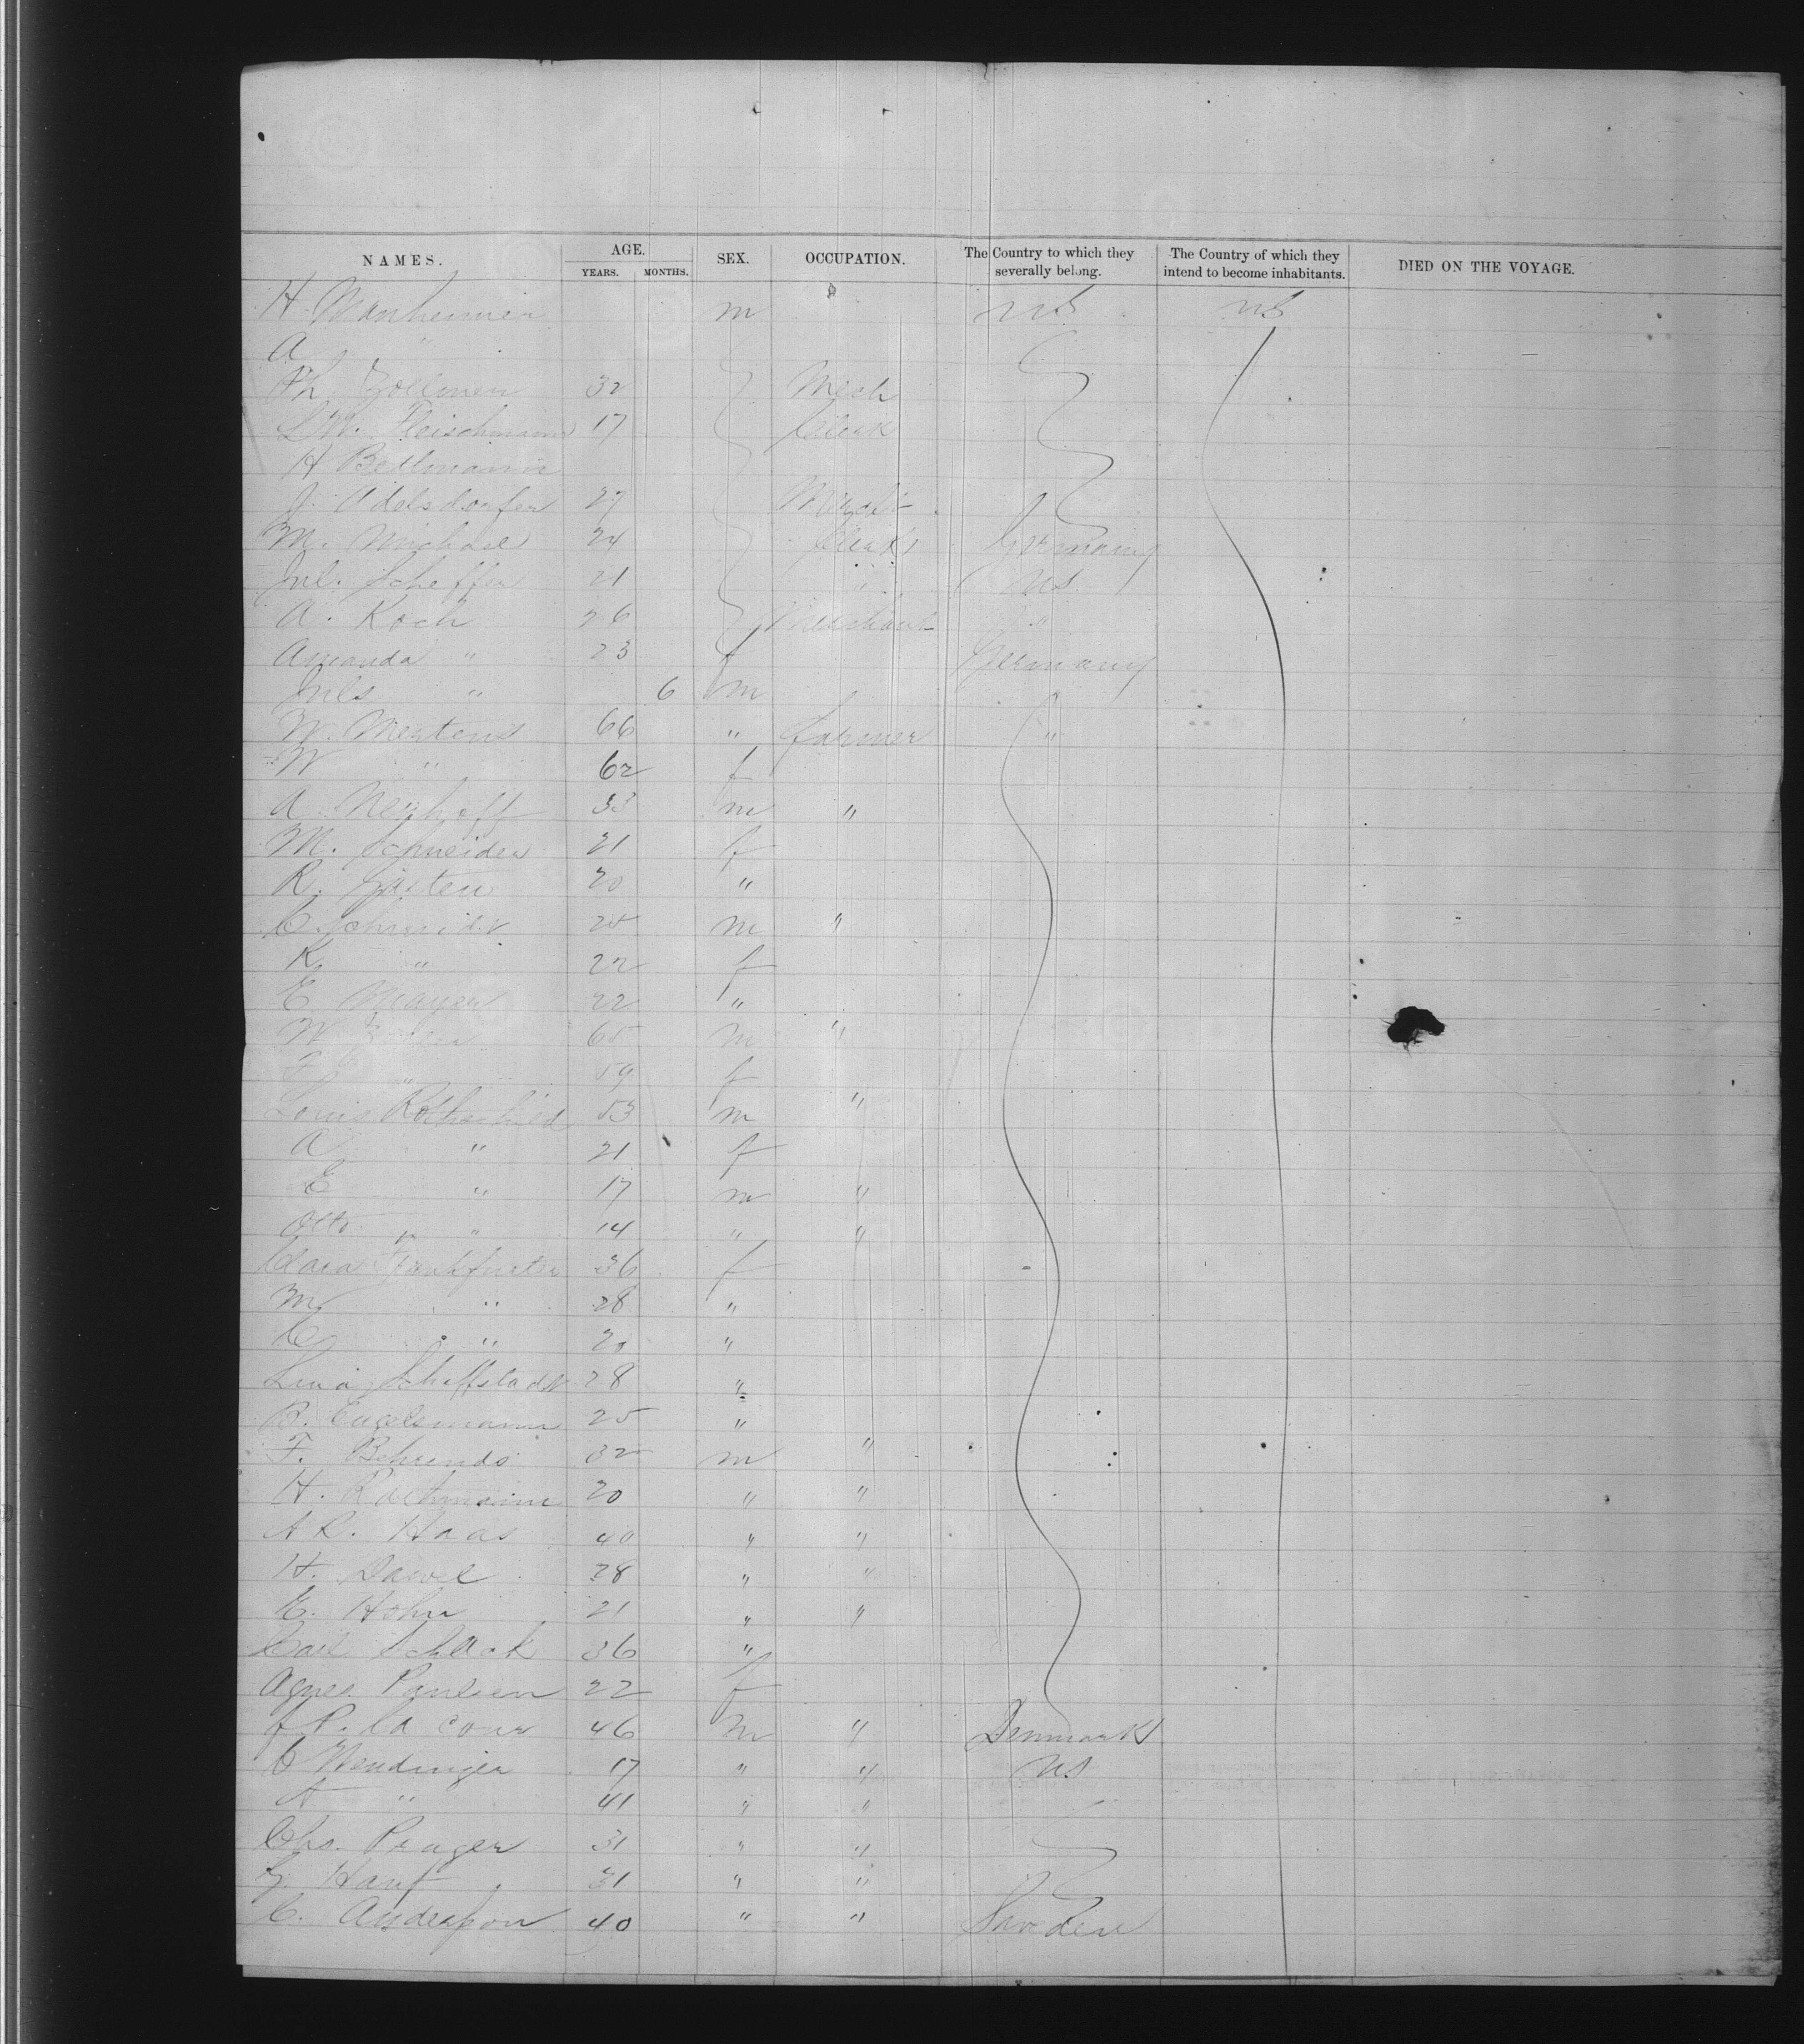 NAMES. AGE. YEARS. MONTHS. SEX. OCCUPATION. The Country to which they severally belong. The Country of which they intend to become inhabitants. DIED ON THE VOYAGE.
H. Manheimer m US US
A "
Ph. Zollmen 32 Mech
L. W. Fleischmann 17 Clerk
H Bellmann
J. Adelsdorfer 27 Mercht
M. Michael 24 Clerk Germany
Jul. Scheffer 21 " US
A. Koch 26 Merchant "
Amanda " 23 f Germany
Juls " 6 m
W. Mertens 66 " farmer "
W " 62 f
A. Neuhoff 33 m "
M. Schneider 21 f
R. 20 "
C. Schmidt 25 m "
K. " 22 f
E Mayer 22 "
W 65 m "
F " 59 f
Louis Rothschild 53 m "
A " 21 f
E " 17 m "
Otto " 14 " "
Clara Frankfurter 36 f
M " 28 "
C " 20 "
Lina 28 "
B. Engelsmann 25 "
F. Behrends 32 m "
H. Rothmann 20 " "
A R. Haas 40 " "
H. 28 " "
E. Hohn 21 " "
Carl Schack 36 "
Agnes Paulsen 22 f
J. P. la Cour 46 m " Denmark
C Wendinger 17 " " US
A " 41 " "
Chs. Prager 31 " "
G. Hauf 31 " "
C. Anderson 40 " " Sweden